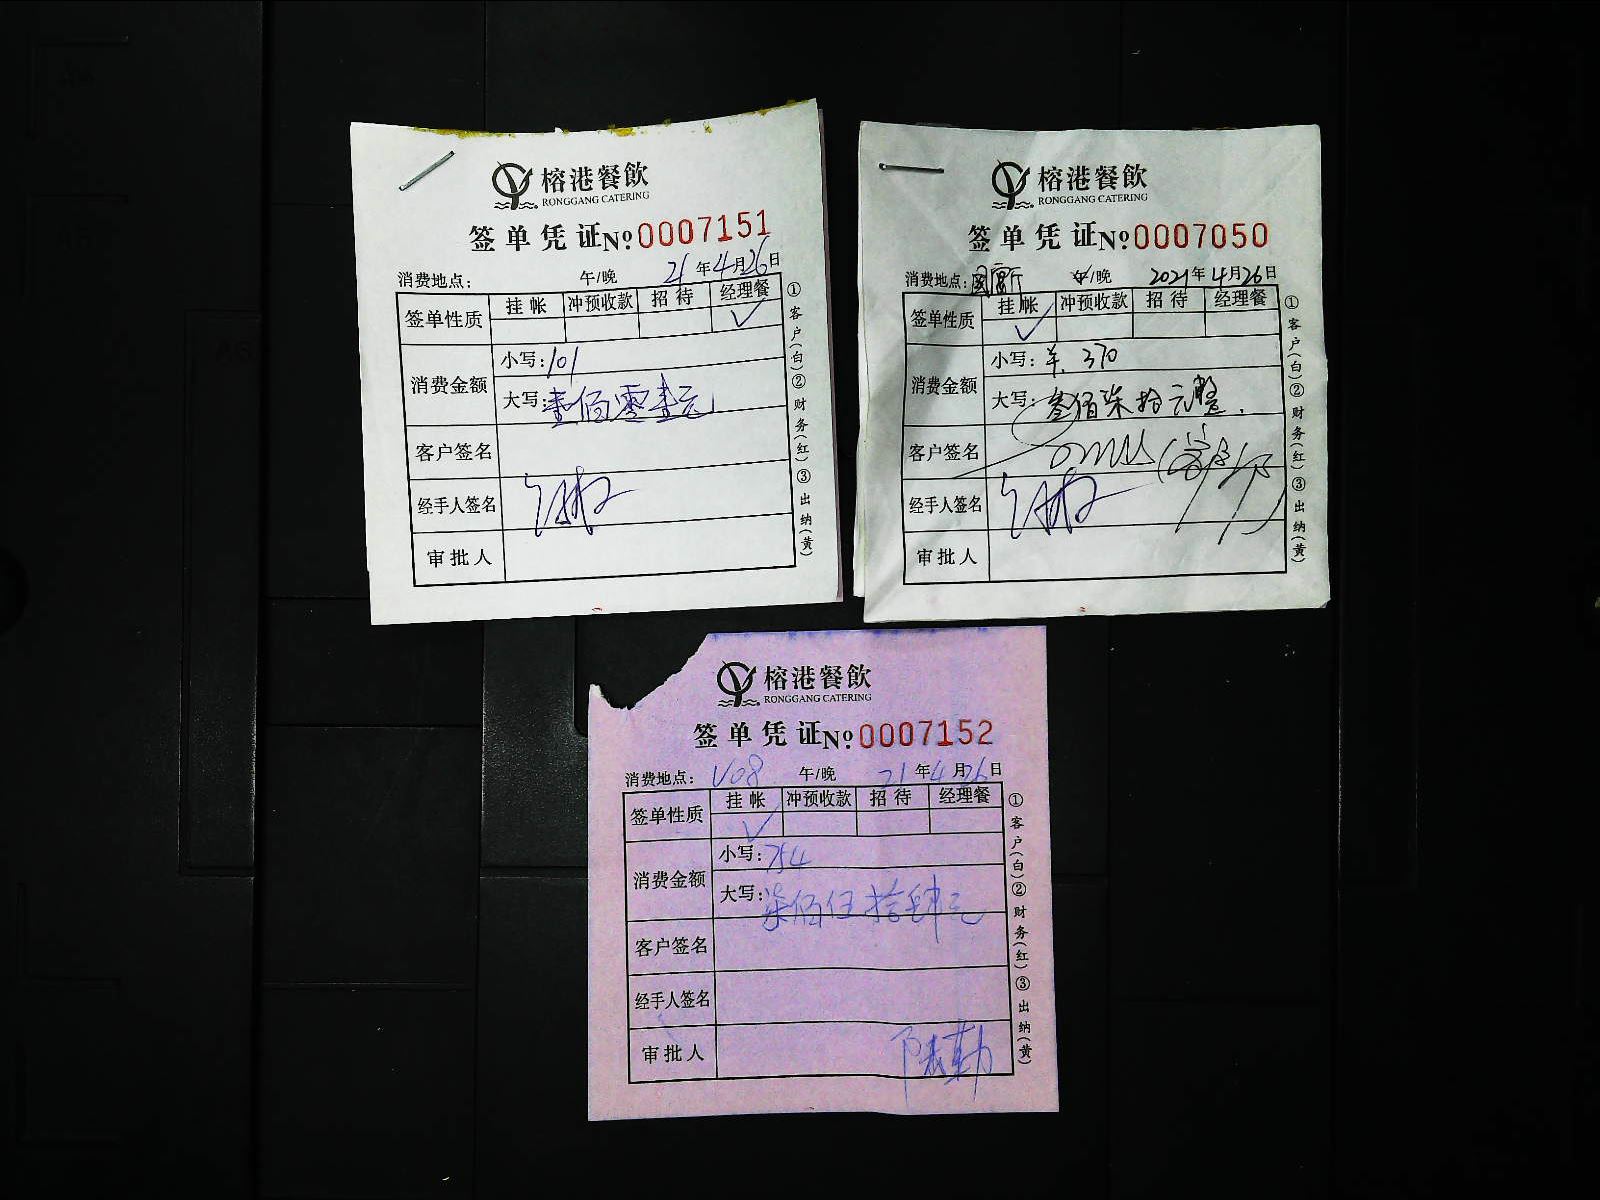 榕港餐飲
RONGGANG CATERING
签单凭证№0007151
消费地点: 午/晚 21年4月26日
签单性质 挂帐 冲预收款 招待 经理餐
✓
消费金额 小写:101
大写:壹佰零壹元
客户签名
经手人签名
审批人
①客户(白)②财务(红)③出纳(黄)
榕港餐飲
RONGGANG CATERING
签单凭证№0007050
消费地点: 午/晚 2021年4月26日
签单性质 挂帐 冲预收款 招待 经理餐
✓
消费金额 小写:¥.370
大写:叁佰柒拾元整.
客户签名
经手人签名
审批人
①客户(白)②财务(红)③出纳(黄)
榕港餐飲
RONGGANG CATERING
签单凭证№0007152
消费地点:V08 午/晚 21年4月26日
签单性质 挂帐 冲预收款 招待 经理餐
✓
消费金额 小写:754
大写:柒佰伍拾肆元
客户签名
经手人签名
审批人
①客户(白)②财务(红)③出纳(黄)